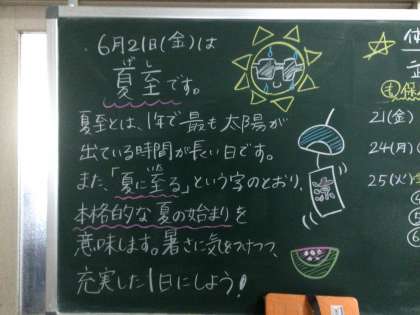 6月21日(金)は
げし
夏至です。
夏至とは、1年で最も太陽が
出ている時間が長い日です。
いた
また、「夏に至る」という字のとおり、
本格的な夏の始まりを
意味します。暑さに気をつけつつ、
充実した1日にしよう!
涼
21(金)
24(月)
25(火)